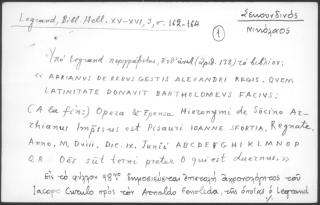 Legrand, Bibl. Hell. XV-XVI, 3, σ. 162-164
Σεκουνδινὸς
Νικόλαος
1
Ὑπὸ Legrand περιγράφεται, (ἀριθ. 178) τὸ βιβλίον:
« ARRIANUS DE REBUS GESTIS ALEXANDRI REGIS. QUEM
LATINITATE DONAVIT BARTHOLOMEUS FACIUS.
(A la fin:) Opera & Epensa Hieronymi de Sõcino Ar-
rhianus Impressus est Pisauri IOANNE SFORTIA, Regnate,
Anno, M, Dviii, Dic. ix. Junii A B C D E F G H I K L M N O P
Q R. Oēs sūt terni preter O qui est duernus. »
Εἰς τὸ φύλλον 98ᵛᵒ δημοσιεύεται ἐπιστολὴ ἀχρονολόγητος τοῦ
Jacopo Curulo πρὸς τὸν Arnaldo Fenolleda, τῆς ὁποίας ὁ Legrand